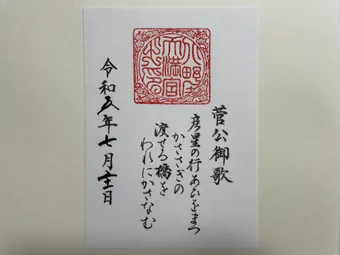 天満宮
菅公御歌
彦星の行あひをまつ
かささぎの
渡せる橋を
われにかさなむ
令和五年七月 日